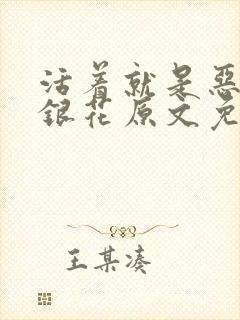 活着就是恶
银花原文免
王某凑